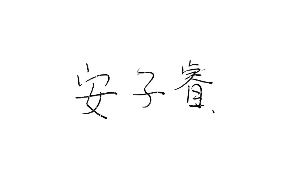 安子睿.